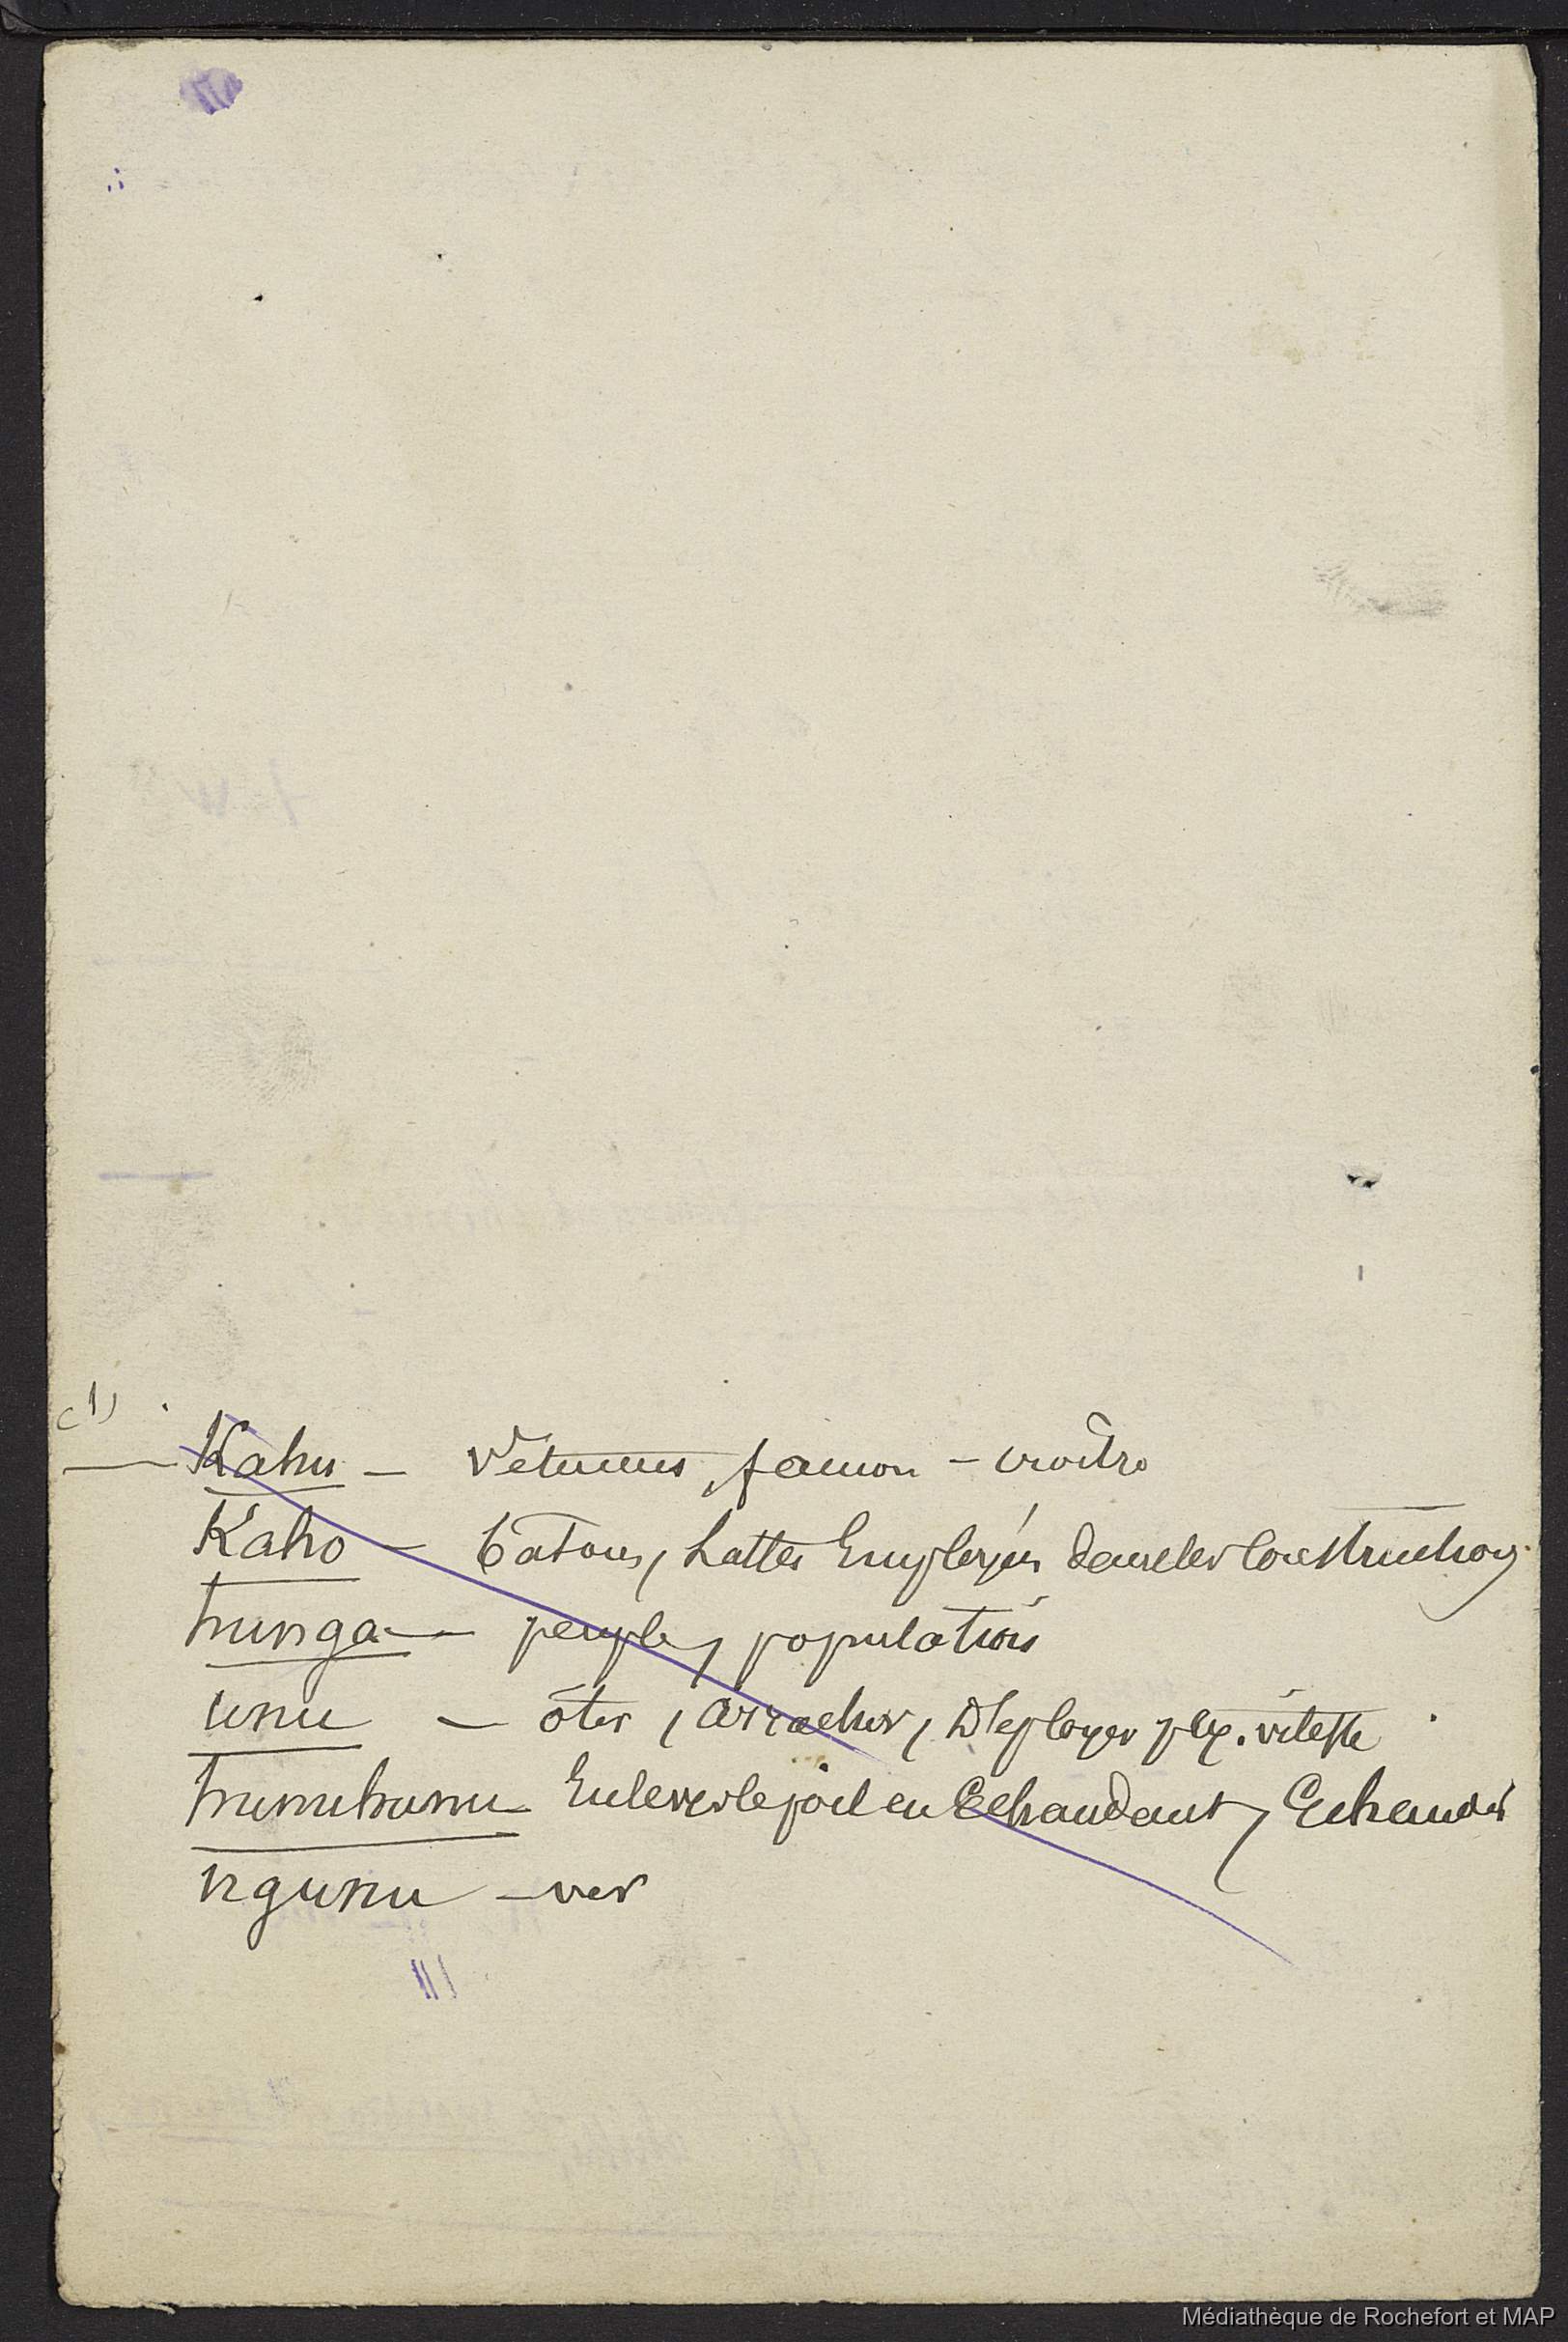 (1)
Kahu — Vêtements, faucon - croître
Kaho — bâtons, lattes Employées dans les Constructions
hunga — peuple, population
unu — ôter, arracher, Déployer pex. vitesse
hunuhunu Enlever le poil en Echaudant, Echauder
ngunu — ver
Médiathèque de Rochefort et MAP